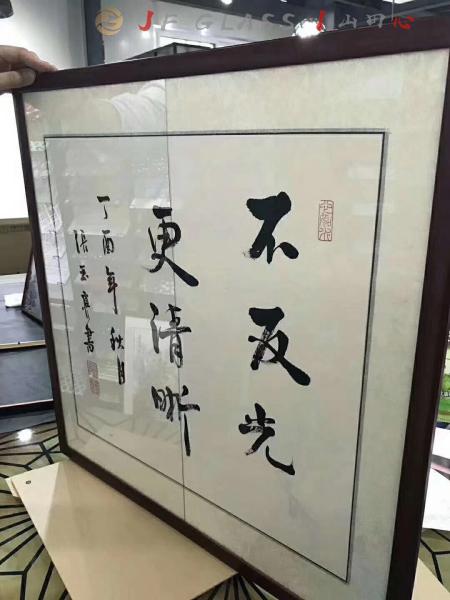 JF GLASS 山田心
不反光
更清晰
丁酉年秋月
张玉亭书